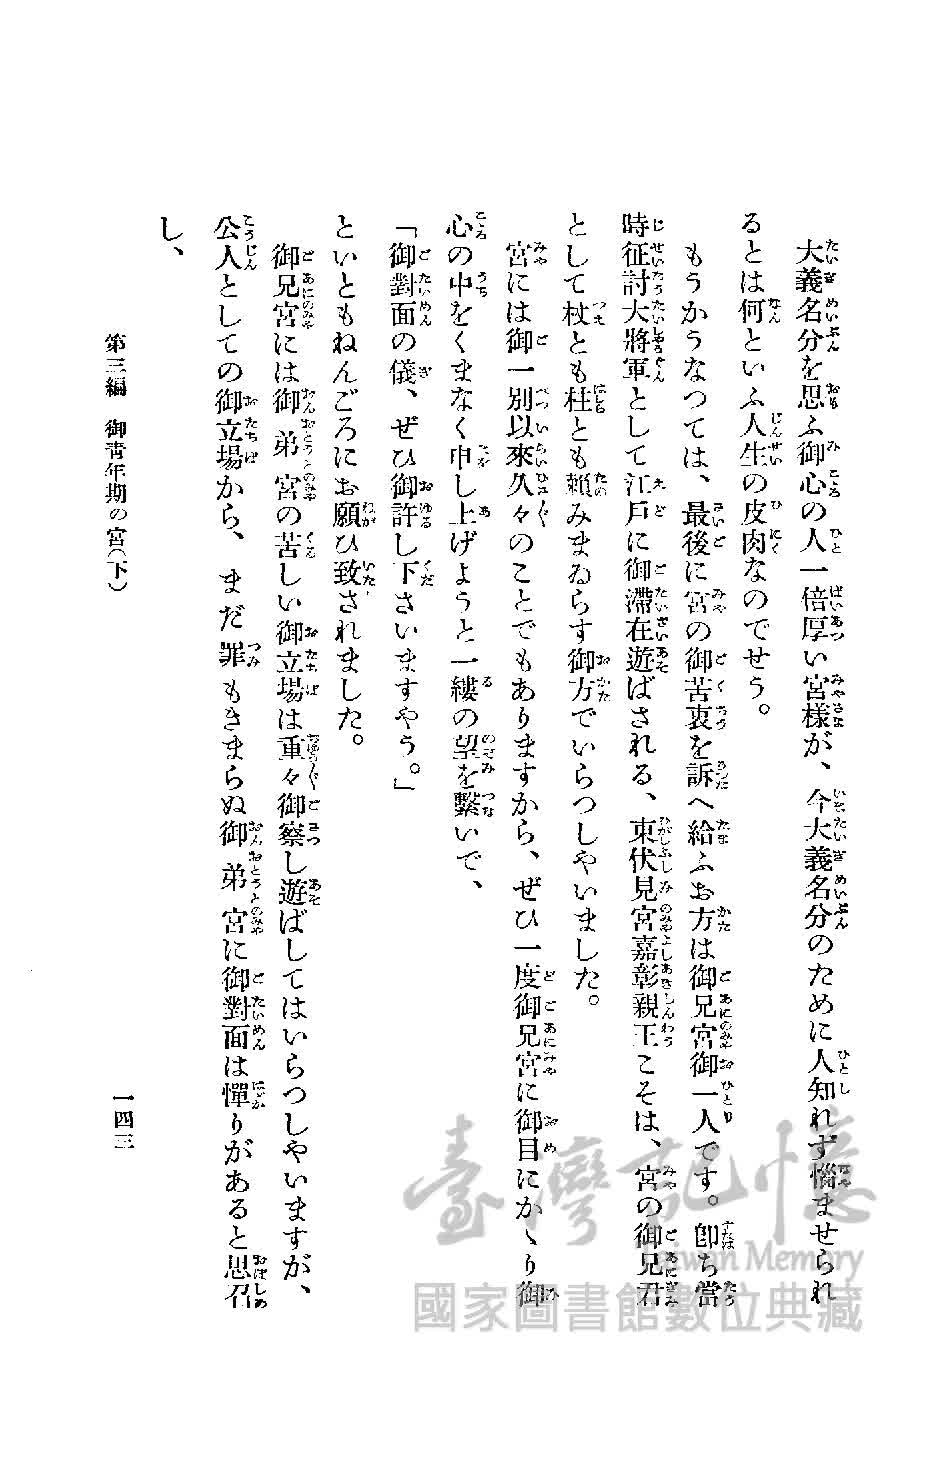 大義名分を思ふ御心の人一倍厚い宮様が、今大義名分のために人知れず惱ませられ
るとは何といふ人生の皮肉なのでせう。
もうかうなつては、最後に宮の御苦衷を訴へ給ふお方は御兄宮御一人です。卽ち當
時征討大將軍として江戶に御滯在遊ばされる、東伏見宮嘉彰親王こそは、宮の御兄君
として杖とも柱とも賴みまゐらす御方でいらつしやいました。
宮には御一別以來久々のことでもありますから、ぜひ一度御兄宮に御目にかゝり御
心の中をくまなく申し上げようと一縷の望を繫いで、
「御對面の儀、ぜひ御許し下さいますやう。」
といともねんごろにお願ひ致されました。
御兄宮には御弟宮の苦しい御立場は重々御察し遊ばしてはいらつしやいますが、
公人としての御立場から、まだ罪もきまらぬ御弟宮に御對面は憚りがあると思召
し、
第三編 御靑年期の宮(下)
一四三
臺灣記憶
Taiwan Memory
國家圖書館數位典藏